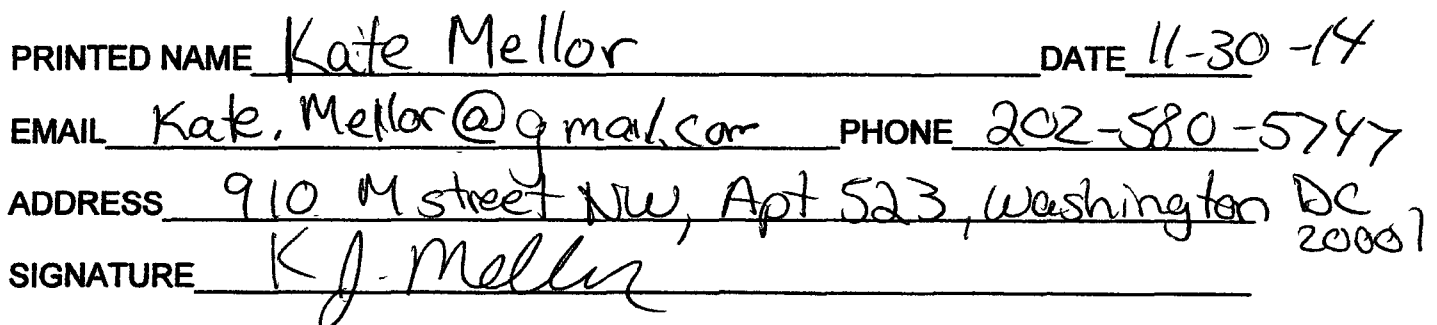 PRINTED NAME Kate Mellor DATE 11-30-14
EMAIL Kate.Mellor@gmail.com PHONE 202-580-5747
ADDRESS 910 M street NW, Apt 523, Washington DC
20001
SIGNATURE K J. Mellor